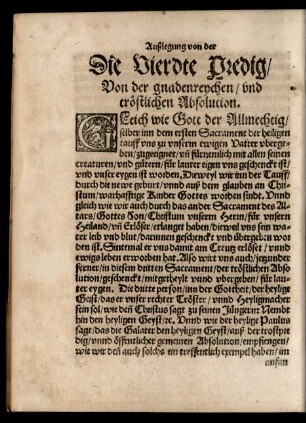 Außlegung von der
Die Vierdte Predig/
Von der gnadenreychen/ vnd
tröstlichen Absolution.
GLeich wie Gott der Allmechtig/
selber inn dem ersten Sacrament der heiligen
tauff vns zu vnserm ewigen Vatter vberge-
ben/ zugeeignet/ vñ fürnemlich mit allen seinen
creaturen/ vnd gütern/ für lauter eigen vns geschenckt ist/
vnd vnser eygen ist worden. Dieweyl wir inn der Tauff/
durch die newe geburt/ vnnd auß dem glauben an Chri-
stum/ warhafftige Kinder Gottes worden sind. Vnnd
gleich wie wir auch durch das ander Sacrament des Al-
tars/ Gottes Son/ Christum vnsern Herrn/ für vnsern
Heiland/ vñ Erlöser/ erlanget haben/ dieweil vns sein wa-
rer leib vnd blut/ darinnen geschenckt vnd vbergeben wor
den ist. Sintemal er vns damit am Creutz erlöset/ vnnd
ewigs leben erworben hat. Also wirt vns auch/ jetzunder
ferner/ in disem dritten Sacrament/ der tröstlichen Abso-
lution/ geschenckt/ mitgetheylt vnnd vbergeben/ für lau-
ter eygen. Die dritte person/ inn der Gottheit/ der heylige
Geist/ das er vnser rechter Tröster/ vnnd Heyligmacher
sein sol/ wie deñ Christus sagt zu seinen Jüngern: Nembt
hin den heyligen Geyst/ ꝛc. Vnnd wie der heylige Paulus
sagt/ das die Galater den heyligen Geyst/ auß der trostpre
dig/ vnnd öffentlicher gemeinen Absolution/ empfiengen/
wie wir deñ auch solchs ein treffentlich exempel haben/ im
anfan